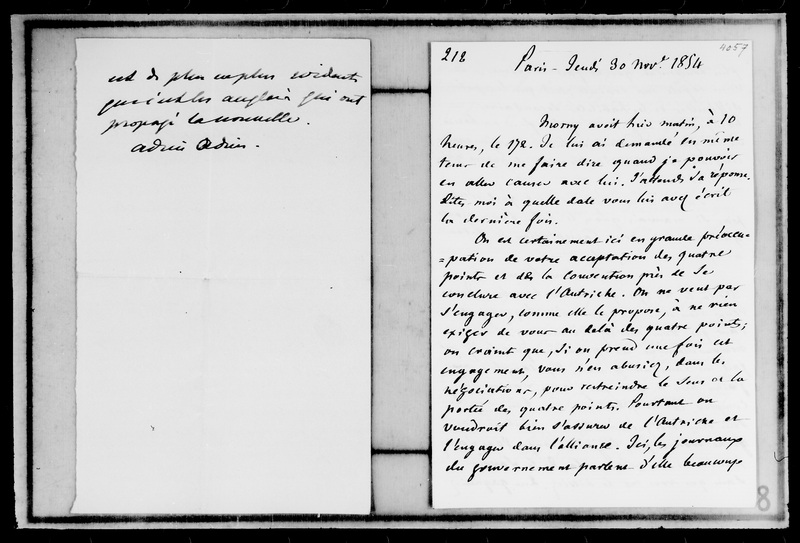 est de plus en plus evident
que c'est les anglais qui ont
propagé la nouvelle.
adieu Adieu.
218
4057
Paris - Jeudi 30 Novr. 1854
Morny avoit hier matin, à 10
heures, le 172. Je lui ai demandé en même
tems de me faire dire quand je pouvois
en aller causer avec lui. J'attends sa réponse.
Dites moi à quelle date vous lui avez écrit
la dernière fois.
On est certainement ici en grande préoccu-
=pation de votre acceptation des quatre
points et de la convention près de se
conclure avec l'Autriche. On ne veut pas
s'engager, comme elle le propose, à ne rien
exiger de vous au delà des quatre points;
on craint que, si on prend une fois cet
engagement, vous n'en abusiez, dans les
négociations, pour restreindre le sens et la
portée des quatre points. Pourtant on
voudroit bien s'assurer de l'Autriche et
l'engager dans l'alliance. Ici, les journaux
du gouvernement parlent d'elle beaucoup
8